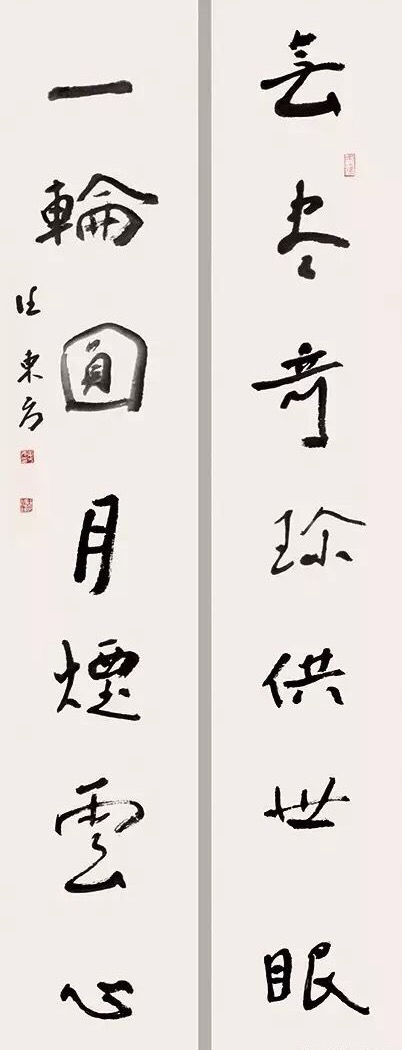 無尽奇珍供世眼
一輪圓月煙雲心
東方